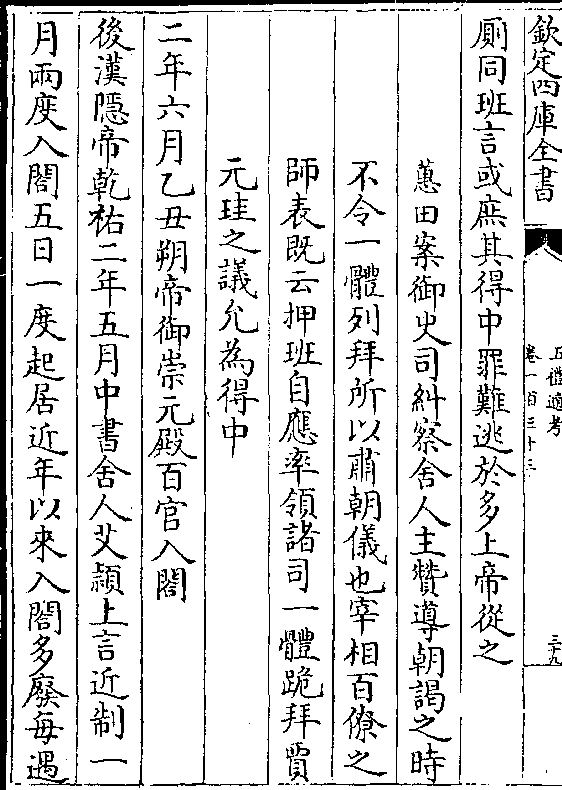 欽定四庫全書
五禮通考
卷一百三十三
三十九
厠同班言或庶其得中罪難逃於多上帝從之
蕙田案御史司糾察舍人主贊導朝謁之時
不令一體列拜所以肅朝儀也宰相百僚之
師表既云押班自應率領諸司一體跪拜賈
元珪之議允為得中
二年六月乙丑朔帝御崇元殿百官入閤
後漢隱帝乾祐二年五月中書舍人艾頴上言近制一
月兩度入閤五日一度起居近年以來入閤多廢每遇